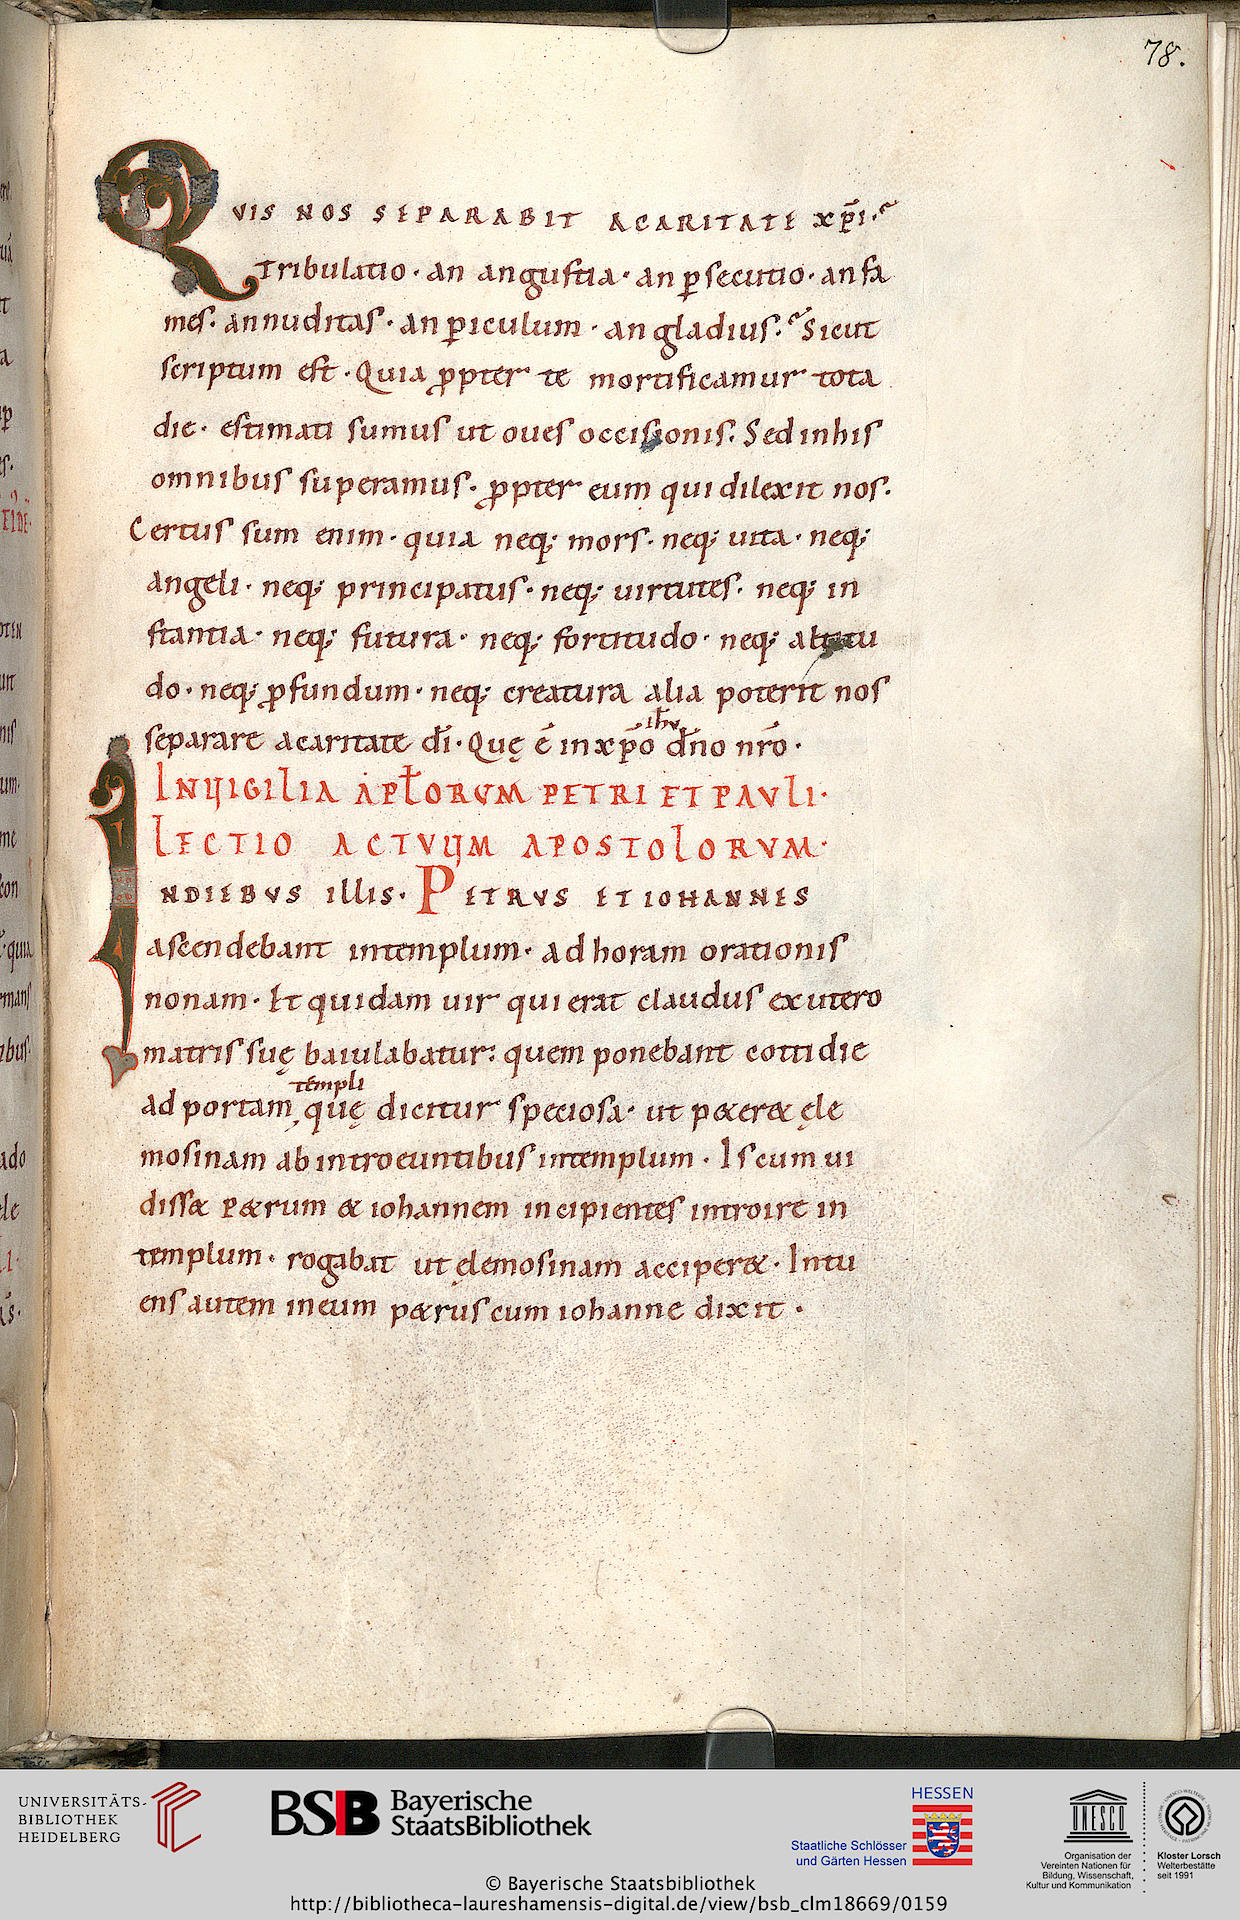 78.
QVIS NOS SEPARABIT ACARITATE XP̄I·
Tribulatio · an anguſtia · an p̱ſecutio · anfa
meſ · annuditaſ · anp̱iculum · angladiuſ. Sicut
ſcriptum eſt · Quia ꝓpter te mortificamur tota
die · eſtimati ſumuſ ut oueſ occiſioniſ. Sedinhiſ
omnibuſ ſuperamuſ · ꝓpter eum quidilexit noſ.
Certuſ ſum enim · quia neq; morſ · neq; uita · neq;
angeli · neq; principatuſ · neq; uirtuteſ · neq; in
ſtantia · neq; futura · neq; fortitudo · neq; altitu
do · neq; ꝓfundum · neq; creatura alia poterit noſ
ſeparare acaritate d̄i · Quę ē inxp̄o ih̄u d̄no nr̄o ·
INVIGILIA AP̄TORVM PETRI ETPAVLI·
LECTIO ACTVVM APOSTOLORVM·
INDIEBVS ILLIS · PETRVS ETIOHANNES
aſcendebant intemplum · adhoram orationiſ
nonam · Et quidam uir quierat clauduſ exutero
matriſ ſuę baiulabatur: quem ponebant cottidie
adportam templi quę dicitur ſpecioſa · ut p&er& ęle
moſinam abintroeuntibuſ intemplum · Iſ cum ui
diſſ& p&rum & iohannem incipienteſ introire in
templum · rogabat ut ęlemoſinam acciper& · Intu
enſ autem ineum p&ruſ cum iohanne dixit ·
UNIVERSITÄTS-
BIBLIOTHEK
HEIDELBERG
BSB Bayerische
StaatsBibliothek
HESSEN
Staatliche Schlösser
und Gärten Hessen
UNESCO
Organisation der
Vereinten Nationen für
Bildung, Wissenschaft,
Kultur und Kommunikation
Kloster Lorsch
Welterbestätte
seit 1991
© Bayerische Staatsbibliothek
http://bibliotheca-laureshamensis-digital.de/view/bsb_clm18669/0159